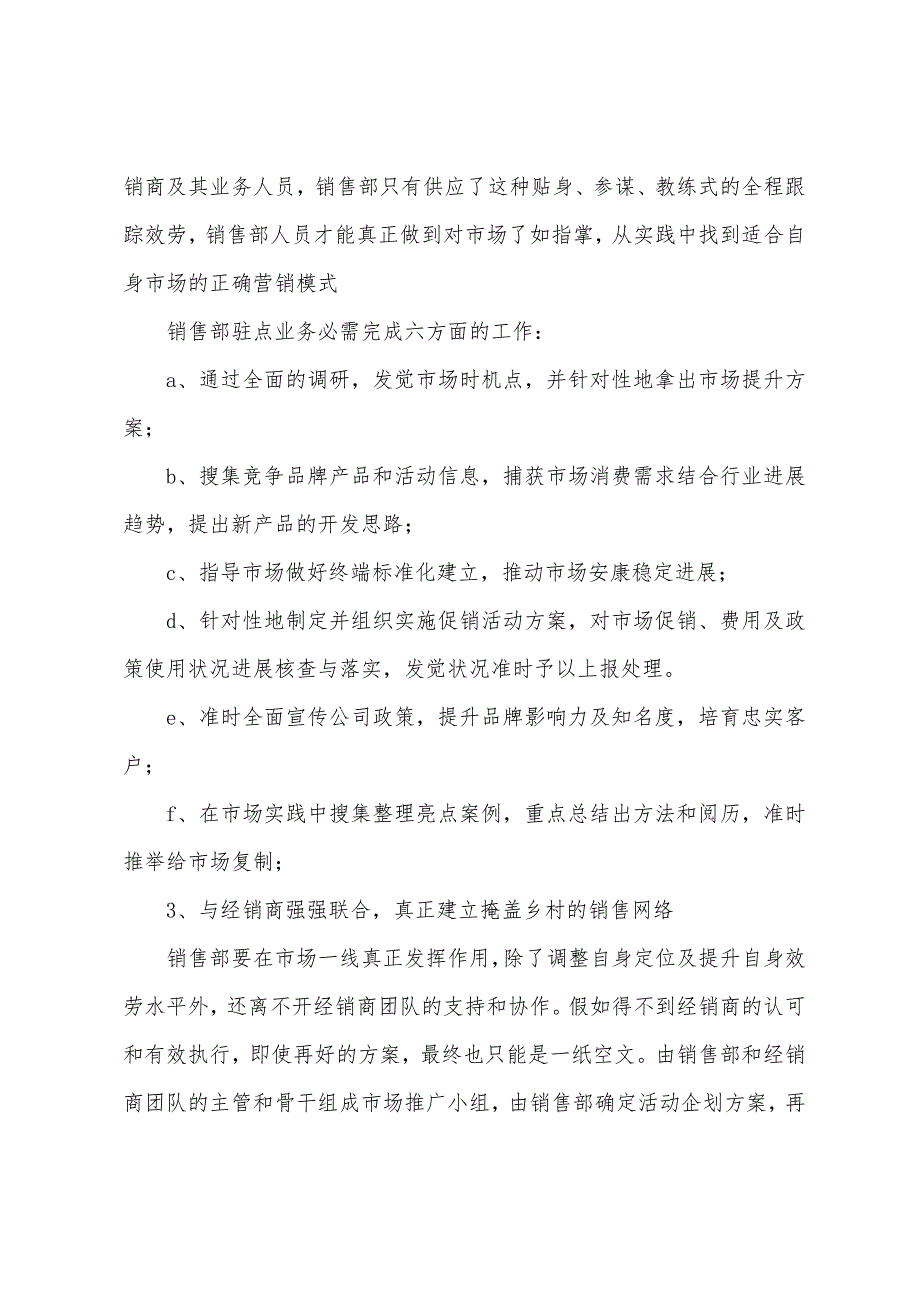 销商及其业务人员，销售部只有供应了这种贴身、参谋、教练式的全程跟
踪效劳，销售部人员才能真正做到对市场了如指掌，从实践中找到适合自
身市场的正确营销模式
销售部驻点业务必需完成六方面的工作：
a、通过全面的调研，发觉市场时机点，并针对性地拿出市场提升方
案；
b、搜集竞争品牌产品和活动信息，捕获市场消费需求结合行业进展
趋势，提出新产品的开发思路；
c、指导市场做好终端标准化建立，推动市场安康稳定进展；
d、针对性地制定并组织实施促销活动方案，对市场促销、费用及政
策使用状况进展核查与落实，发觉状况准时予以上报处理。
e、准时全面宣传公司政策，提升品牌影响力及知名度，培育忠实客
户；
f、在市场实践中搜集整理亮点案例，重点总结出方法和阅历，准时
推举给市场复制；
3、与经销商强强联合，真正建立掩盖乡村的销售网络
销售部要在市场一线真正发挥作用，除了调整自身定位及提升自身效
劳水平外，还离不开经销商团队的支持和协作。假如得不到经销商的认可
和有效执行，即使再好的方案，最终也只能是一纸空文。由销售部和经销
商团队的主管和骨干组成市场推广小组，由销售部确定活动企划方案，再